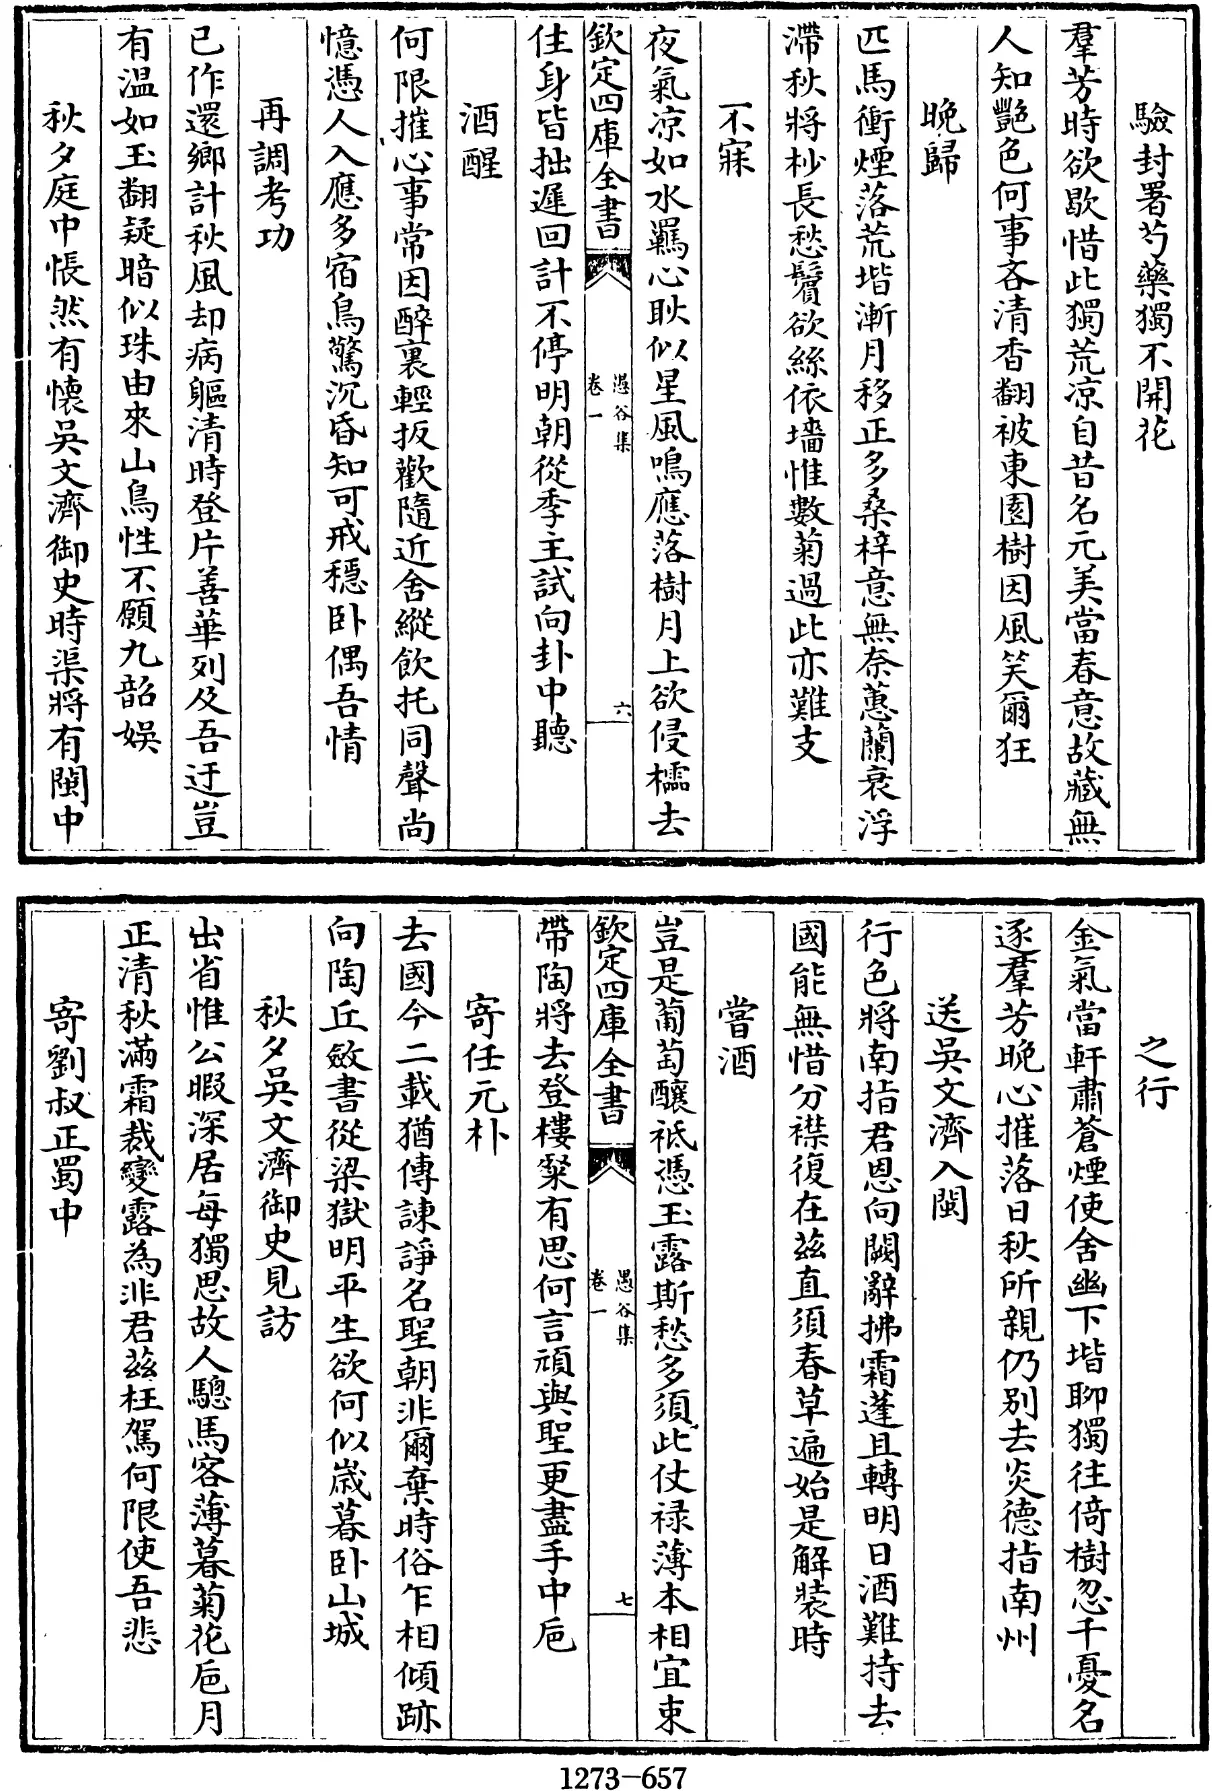 驗封署芍藥獨不開花
羣芳時欲歇惜此獨荒凉自昔名元美當春意故藏無
人知艷色何事吝清香翻被東園樹因風笑爾狂
晚歸
匹馬衝煙落荒堦漸月移正多桑梓意無奈蕙蘭衰浮
滯秋將杪長愁鬢欲絲依墻惟數菊過此亦難支
不寐
夜氣凉如水羈心耿似星風鳴應落樹月上欲侵櫺去
欽定四庫全書
愚谷集
卷一
六
住身皆拙遲回計不停明朝從季主試向卦中聽
酒醒
何限摧心事常因醉裏輕扳歡隨近舍縱飲托同聲尚
憶憑人入應多宿鳥驚沉昏知可戒穩卧偶吾情
再調考功
已作還鄉計秋風却病軀清時登片善華列及吾迂豈
有温如玉翻疑暗似珠由來山鳥性不願九韶娱
秋夕庭中悵然有懷吳文濟御史時渠將有閩中
之行
金氣當軒肅蒼煙使舍幽下堦聊獨往倚樹忽千憂名
逐羣芳晚心摧落日秋所親仍别去炎德指南州
送吳文濟入閩
行色將南指君恩向闕辭拂霜蓬且轉明日酒難持去
國能無惜分襟復在兹直須春草遍始是解裝時
嘗酒
豈是葡萄釀祗憑玉露斯愁多須此仗禄薄本相宜束
欽定四庫全書
愚谷集
卷一
七
帶陶將去登樓粲有思何言頑與聖更盡手中巵
寄任元朴
去國今二載猶傳諫諍名聖朝非爾棄時俗乍相傾跡
向陶丘斂書從梁獄明平生欲何似嵗暮卧山城
秋夕吳文濟御史見訪
出省惟公暇深居每獨思故人驄馬客薄暮菊花巵月
正清秋滿霜裁變露為非君兹枉駕何限使吾悲
寄劉叔正蜀中
1273-657